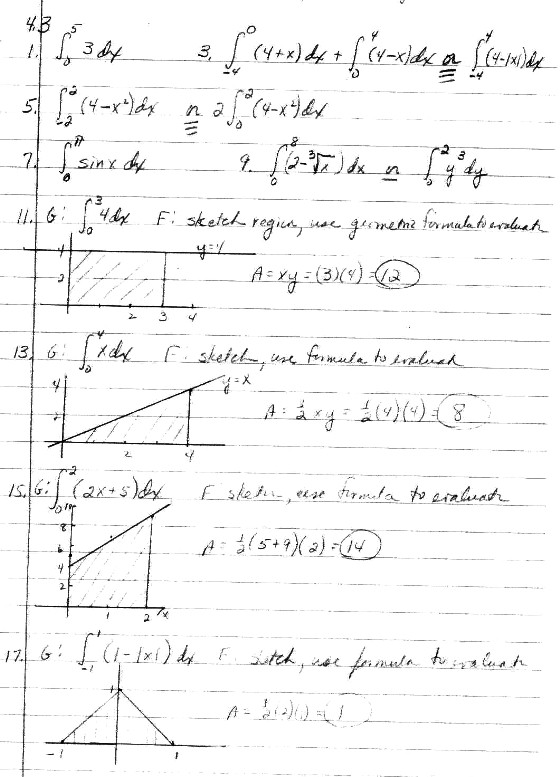 4.3
1. ∫₀⁵ 3 dx 3. ∫₋₄⁰ (4+x) dx + ∫₀⁴ (4-x) dx or ∫₋₄⁴ (4-|x|) dx
5. ∫₋₂² (4-x²) dx or 2∫₀² (4-x²) dx
7. ∫₀^π sin x dx 9. ∫₀⁸ (2-∛x) dx or ∫₀² y³ dy
11. G: ∫₀³ 4 dx F: sketch region, use geometric formula to evaluate
y=4
4
2
A = xy = (3)(4) = 12
2 3 4
13. G: ∫₀⁴ x dx F: sketch, use formula to evaluate
4 y=x
2
A = ½ xy = ½ (4)(4) = 8
2 4
15. G: ∫₀² (2x+5) dx F sketch, use formula to evaluate
10
8
6
4
2
A = ½ (5+9)(2) = 14
1 2 x
17. G: ∫₋₁¹ (1-|x|) dx F: sketch, use formula to evaluate
1
A = ½ (2)(1) = 1
-1 1